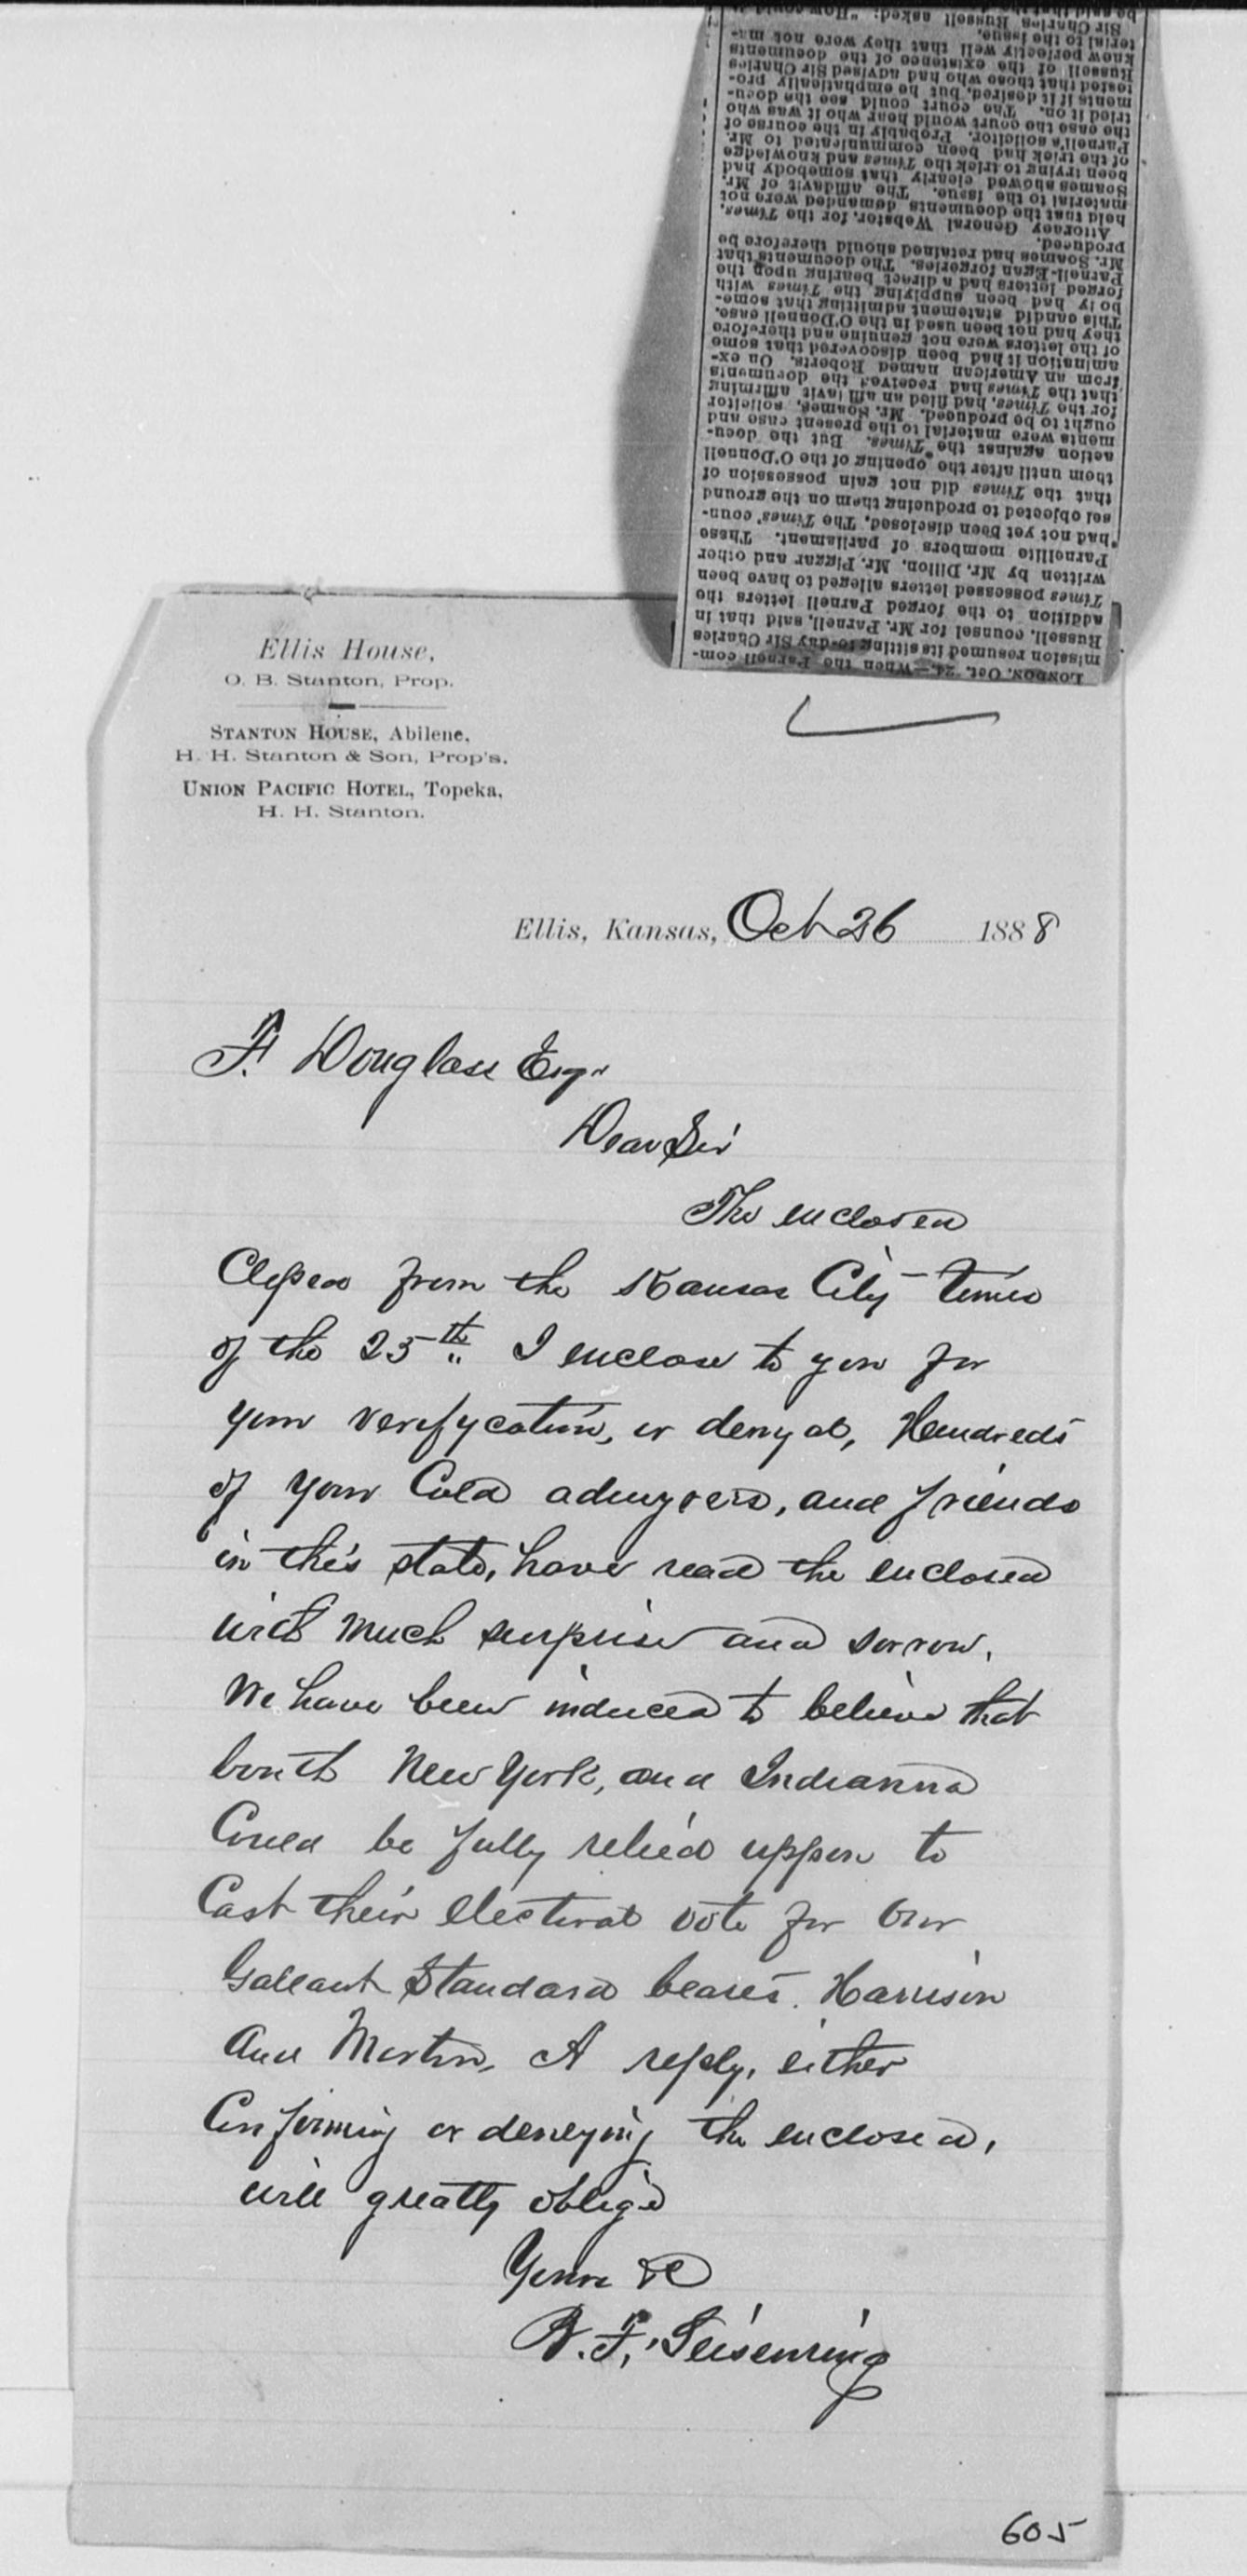 LONDON, Oct. 24.—When the Parnell com-
mission resumed its sitting to-day Sir Charles
Russell, counsel for Mr. Parnell, said that in
addition to the forged Parnell letters the
Times possessed letters alleged to have been
written by Mr. Dillon, Mr. Piggar and other
Parnellite members of parliament. These
had not yet been disclosed. The Times' coun-
sel objected to producing them on the ground
that the Times did not gain possession of
them until after the opening of the O'Donnell
action against the Times. But the docu-
ments were material to the present case and
ought to be produced. Mr. Soames, solicitor
for the Times, had filed an affidavit affirming
that the Times had received the documents
from an American named Roberts. On ex-
amination it had been discovered that some
of the letters were not genuine and therefore
they had not been used in the O'Donnell case.
This candid statement admitting that some-
body had been supplying the Times with
forged letters had a direct bearing upon the
Parnell-Egan forgeries. The documents that
Mr. Soames had retained should therefore be
produced.
Attorney General Webster, for the Times,
held that the documents demanded were not
material to the issue. The affidavit of Mr.
Soames showed clearly that somebody had
been trying to trick the Times and knowledge
of the trick had been communicated to Mr.
Parnell's solicitor. Probably in the course of
the case the court would hear who it was who
tried it on. The court could see the docu-
ments if it desired, but he emphatically pro-
tested that those who had advised Sir Charles
Russell of the existence of the documents
know perfectly well that they were not ma-
terial to the issue.
Sir Charles Russell asked: "How could it
be said that the
Ellis House,
O. B. Stanton, Prop.
STANTON HOUSE, Abilene,
H. H. Stanton & Son, Prop's.
UNION PACIFIC HOTEL, Topeka,
H. H. Stanton.
Ellis, Kansas, Oct 26 1888
F. Douglass Esqr
Dear Sir
The enclosed
Cliped from the Kansas City times
of the 25th I enclose to you for
your verifycation, or denyal, Hundreds
of your Cold admyrers, and friends
in this state, have read the enclosed
with much surprise and sorrow.
We have been induced to believe that
bouth New York, and Indianna
Could be fully relied uppon to
Cast their electoral vote for Our
Gallant Standard bearers. Harrison
And Morton. A reply, either
Confirming or denying the enclosed,
will greatly oblige
Yours &C
B. F. Leisenring
605